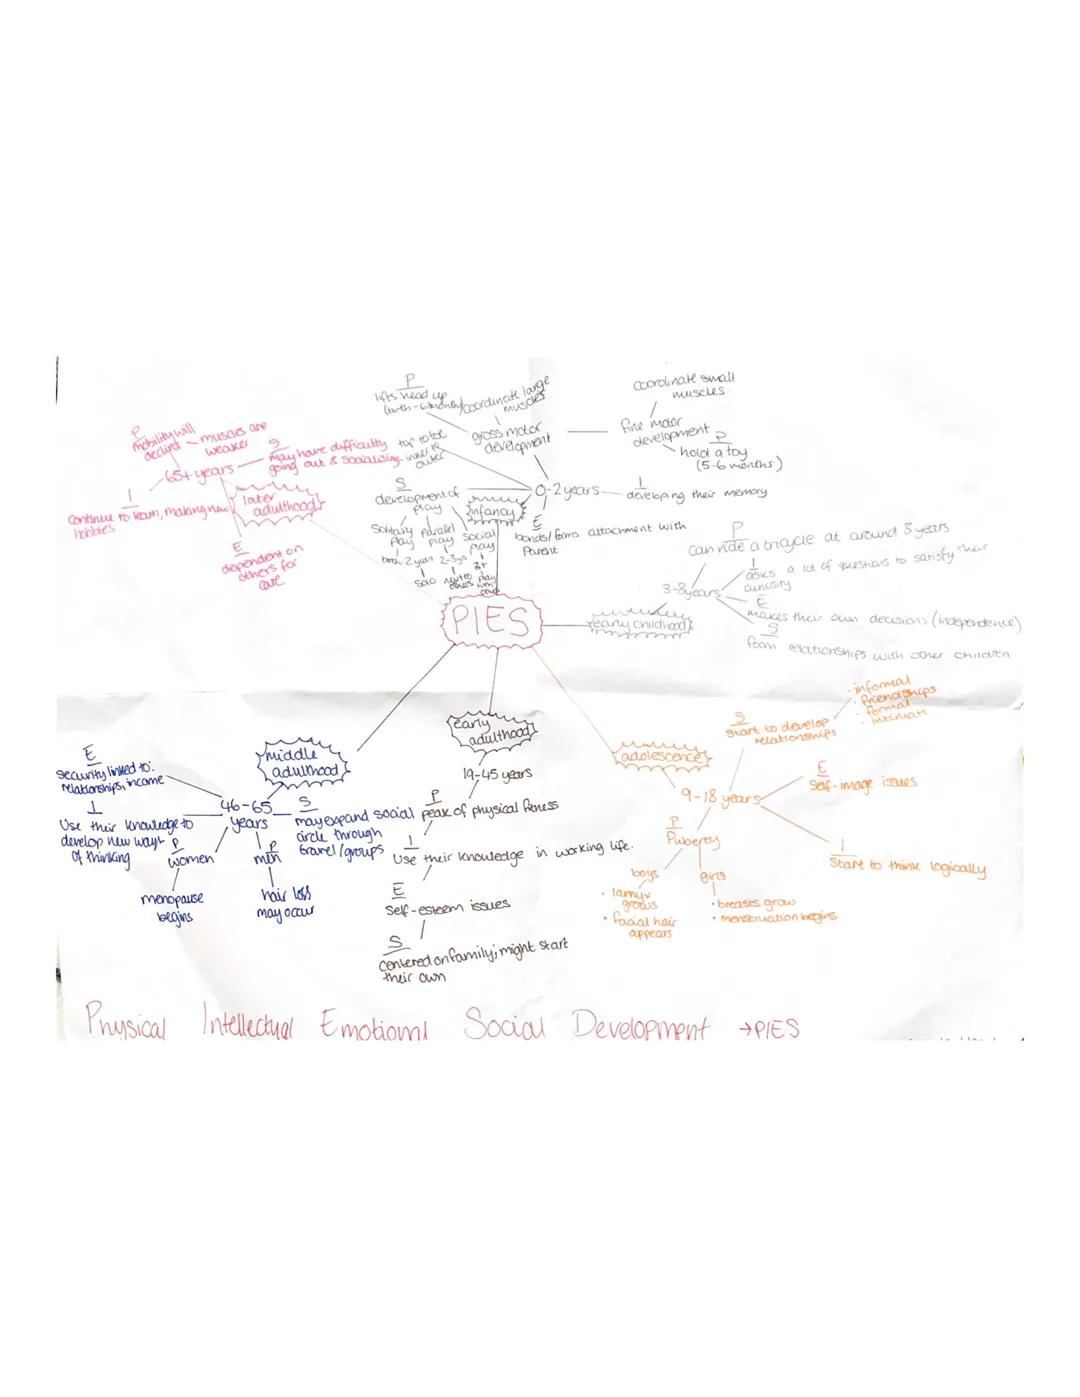 P
lifts head up
(birth-6 months)
coordinate large
muscles
gross motor
development
top to toe
inner to
outer
coordinate small
muscles
fine motor
development
P
hold a toy
(5-6 months)
0-2 years
infancy
I
developing their memory
E
bonds/forms attachment with
Parent
S
development of
play
Solitary
Play
birth-2 years
solo
parallel
play
2-3yrs
next to
others
social
play
3+
play
with
others
P
mobility will
decline
muscles are
weaker
S
May have difficulty
going out & socialising.
65+ years
later
adulthood
I
Continue to learn, making new
hobbies
E
dependent on
others for
care
PIES
early childhood
3-8years
P
can ride a tricycle at around 3 years
I
asks a lot of questions to satisfy their
curiosity
E
makes their own decisions (independence)
S
form relationships with other children
adolescence
9-18 years
S
Start to develop
relationships
• informal
• friendships
• formal
• intimate
E
Self-image issues
I
Start to think logically
P
Puberty
boys
• larnyx
grows
• facial hair
appears
girls
• breasts grow
• menstruation begins
early
adulthood
19-45 years
P
peak of physical fitness
I
Use their knowledge in working life.
E
Self-esteem issues
S
centered on family; might start
their own
middle
adulthood
46-65
years
E
security linked to:
relationships, income
I
Use their knowledge to
develop new ways
of thinking
S
may expand social
circle through
travel/groups
P
women
menopause
begins
P
men
hair loss
may occur
Physical Intellectual Emotional Social Development → PIES